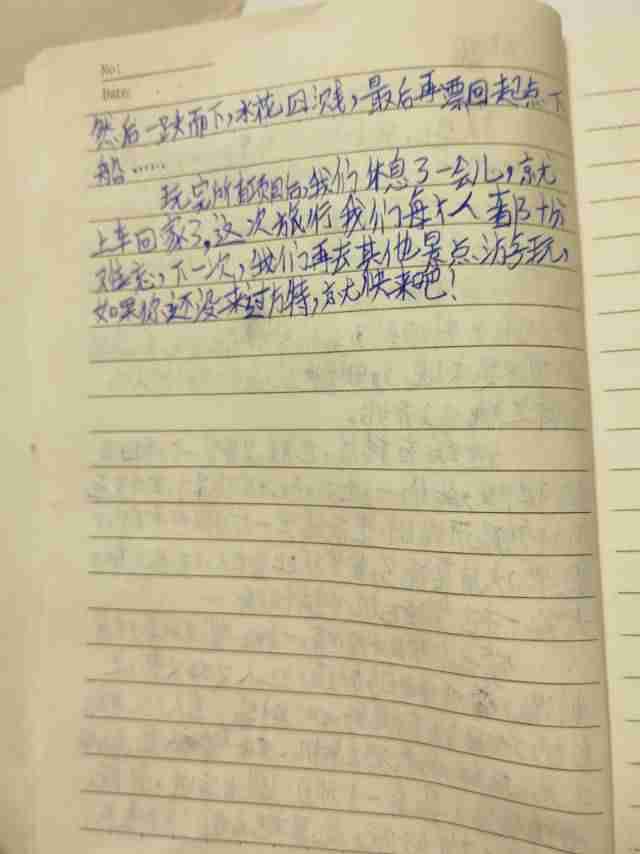 No:
Date:
然后一跃而下，水花四溅，最后再票回起点下
船……
玩完所有项目后，我们休息了一会儿，就
上车回家了，这次旅行我们每个人都十分
难忘，下一次，我们再去其他景点游玩，
如果你还没来过方特，就快来吧！